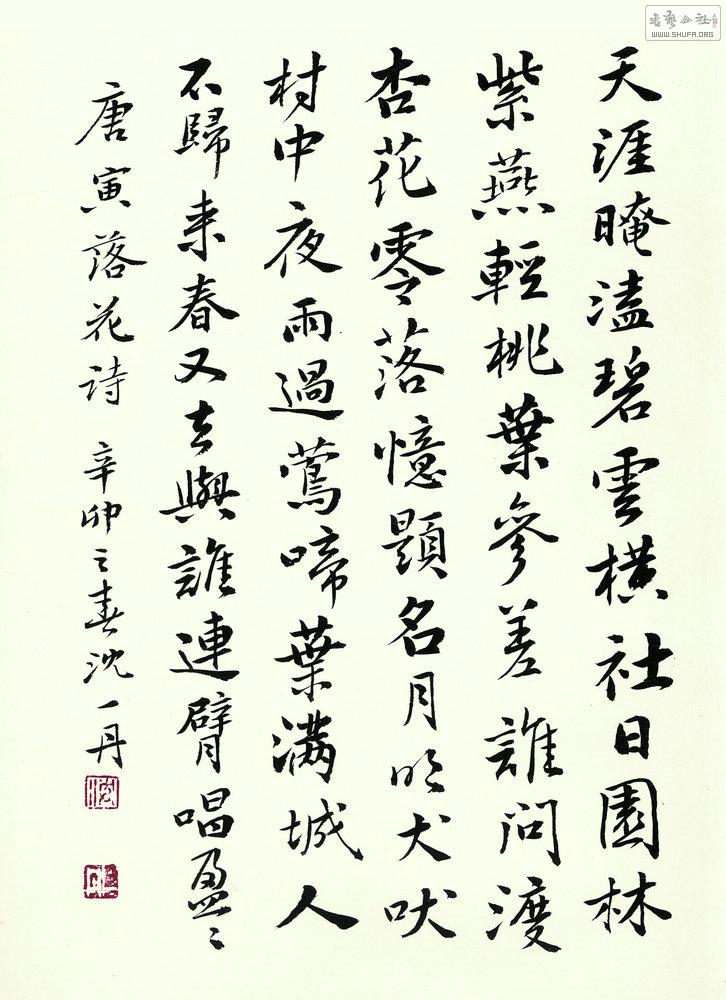 天涯晻溘碧雲橫社日園林
紫燕輕桃葉參差誰問渡
杏花零落憶題名月明犬吠
村中夜雨過鶯啼葉滿城人
不歸来春又去與誰連臂唱盈〻
唐寅落花诗 辛卯之春沈一丹
WWW.SHUFA.ORG